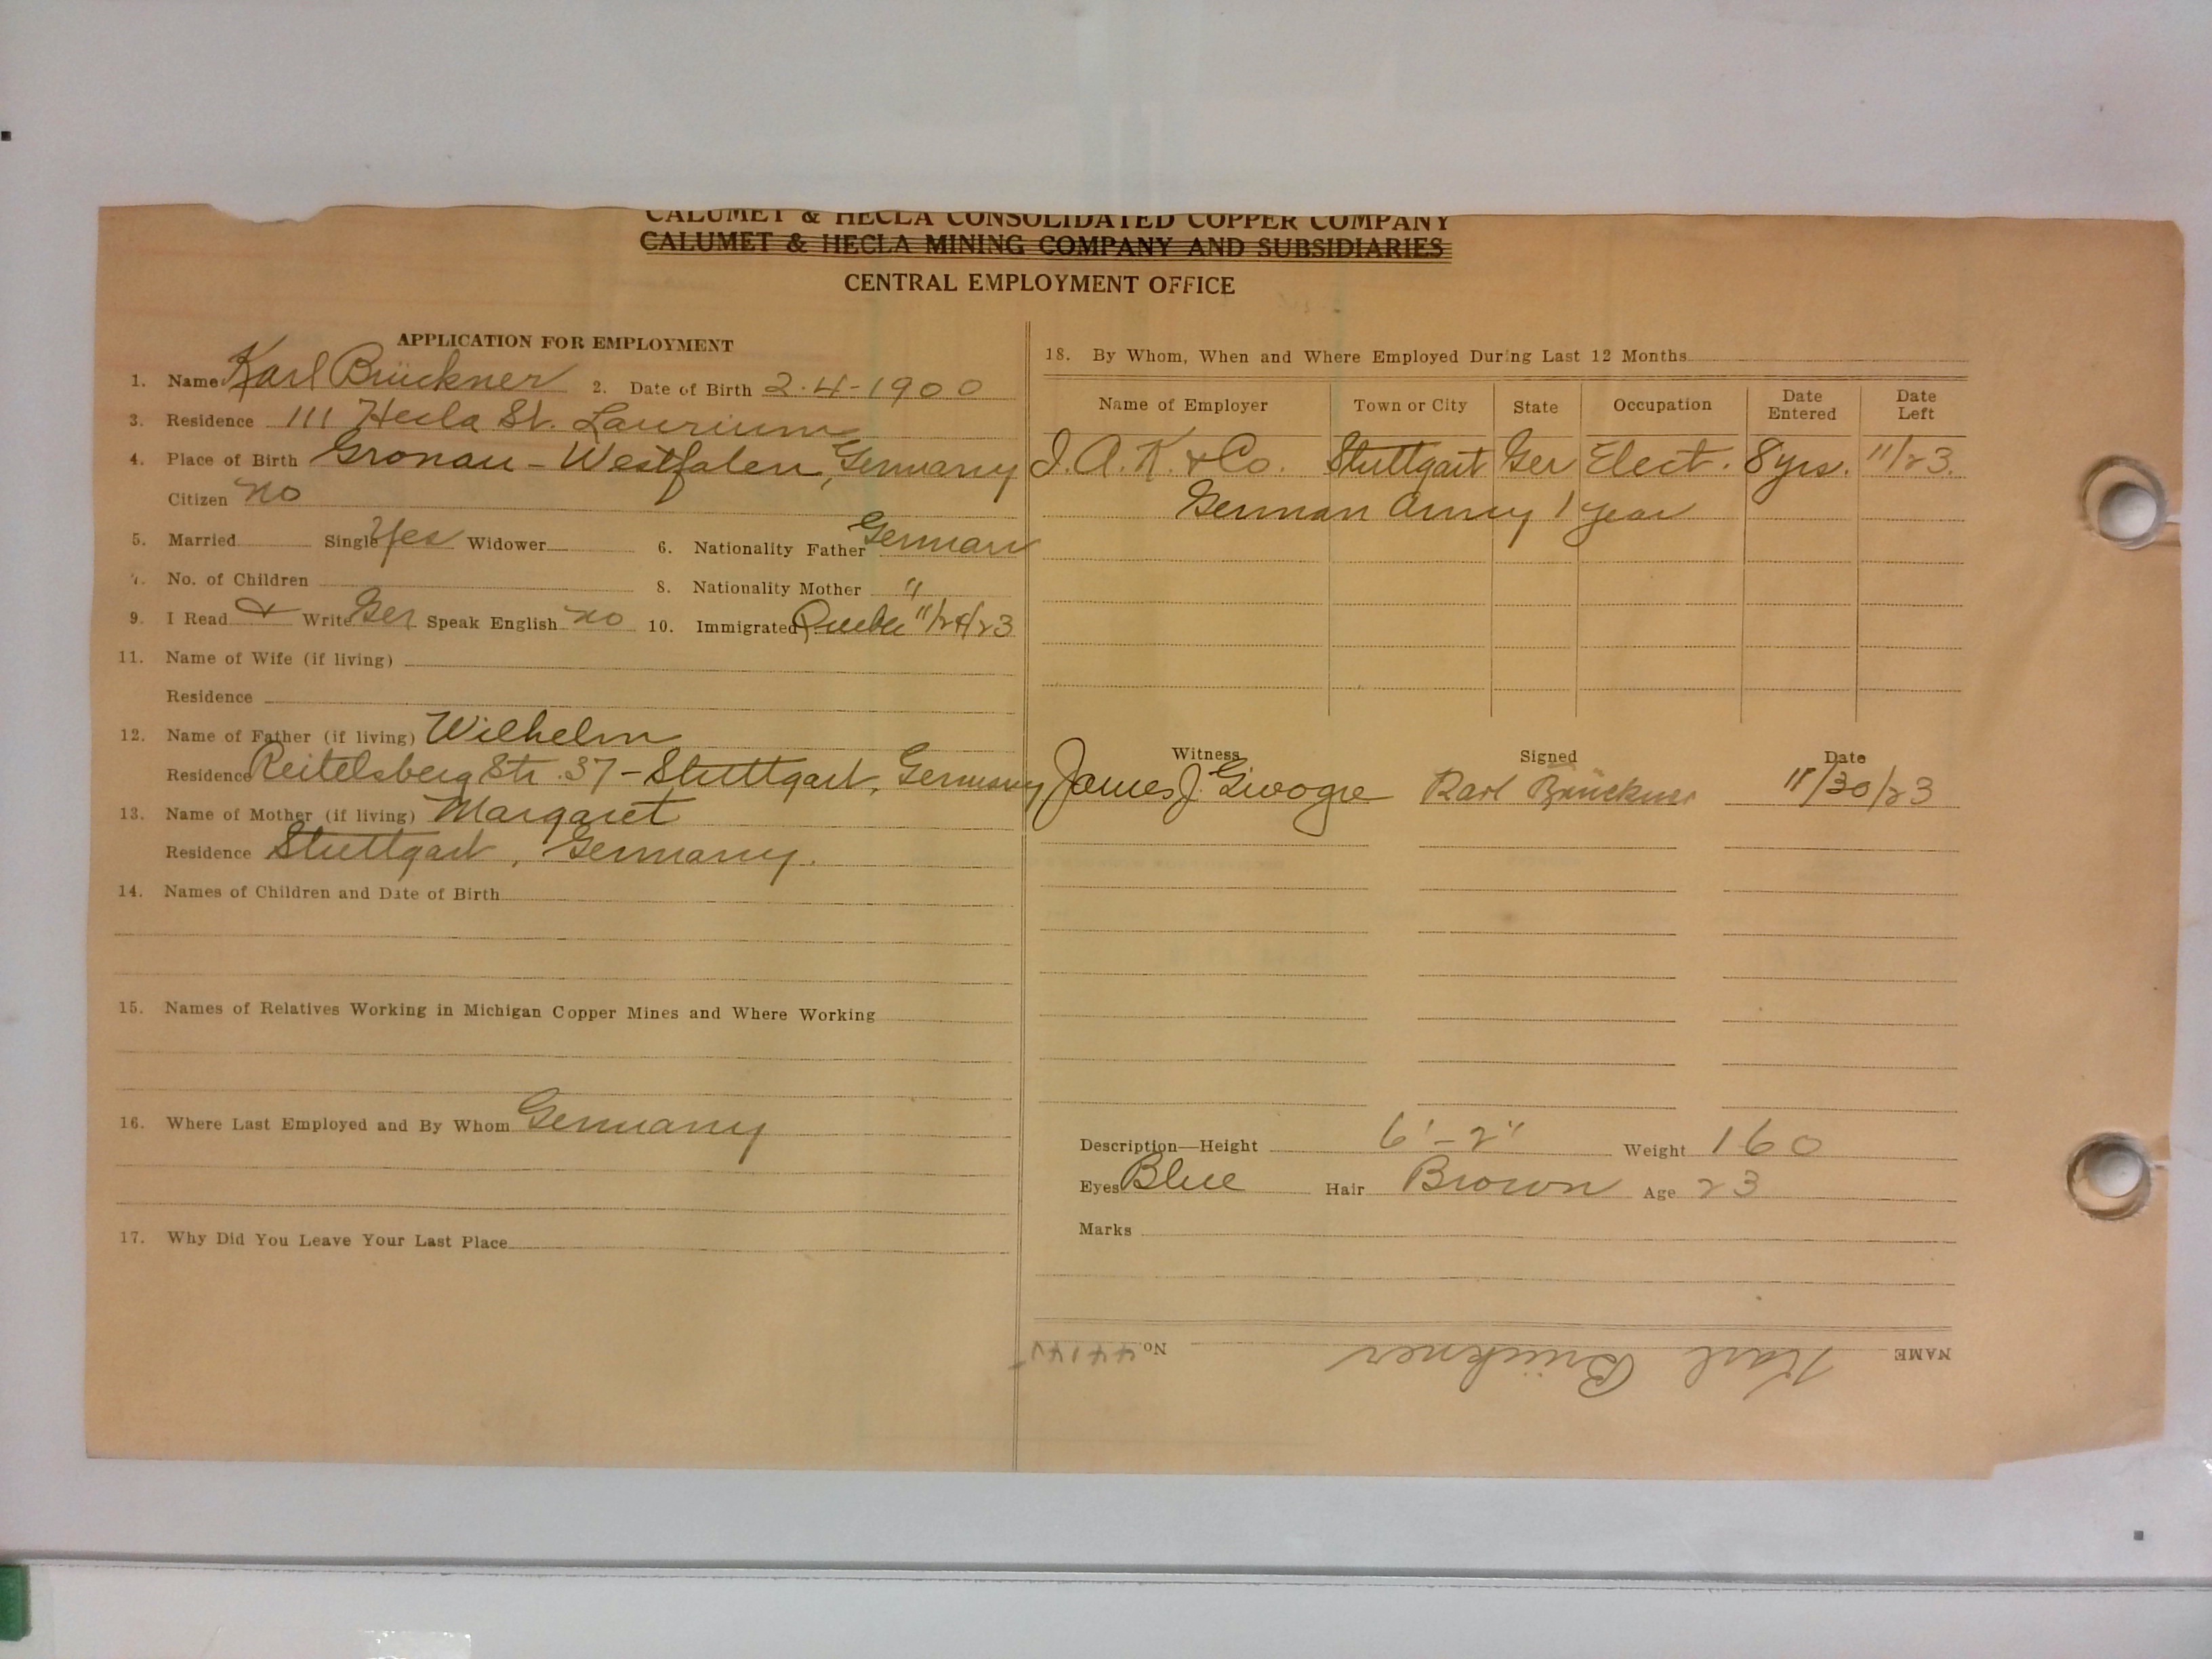 CALUMET & HECLA CONSOLIDATED COPPER COMPANY
CALUMET & HECLA MINING COMPANY AND SUBSIDIARIES
CENTRAL EMPLOYMENT OFFICE
APPLICATION FOR EMPLOYMENT
1. Name Karl Brückner 2. Date of Birth 2-4-1900
3. Residence 111 Hecla St. Laurium
4. Place of Birth Gronau - Westfalen, Germany
Citizen no
5. Married Single Yes Widower 6. Nationality Father German
7. No. of Children 8. Nationality Mother "
9. I Read & Write Ger Speak English no 10. Immigrated 11/24/23
11. Name of Wife (if living)
Residence
12. Name of Father (if living) Wilhelm
Residence Reitelsberg Str. 37 - Stuttgart, Germany
13. Name of Mother (if living) Margaret
Residence Stuttgart, Germany.
14. Names of Children and Date of Birth
15. Names of Relatives Working in Michigan Copper Mines and Where Working
16. Where Last Employed and By Whom Germany
17. Why Did You Leave Your Last Place
18. By Whom, When and Where Employed During Last 12 Months
Name of Employer Town or City State Occupation Date Entered Date Left
J. A. K. & Co. Stuttgart Ger Elect. 8 yrs. 11/23.
German Army 1 year
Witness Signed Date
James J. Karl Brückner 11/30/23
Description—Height 6'-2" Weight 160
Eyes Blue Hair Brown Age 23
Marks
NAME Karl Brückner No.